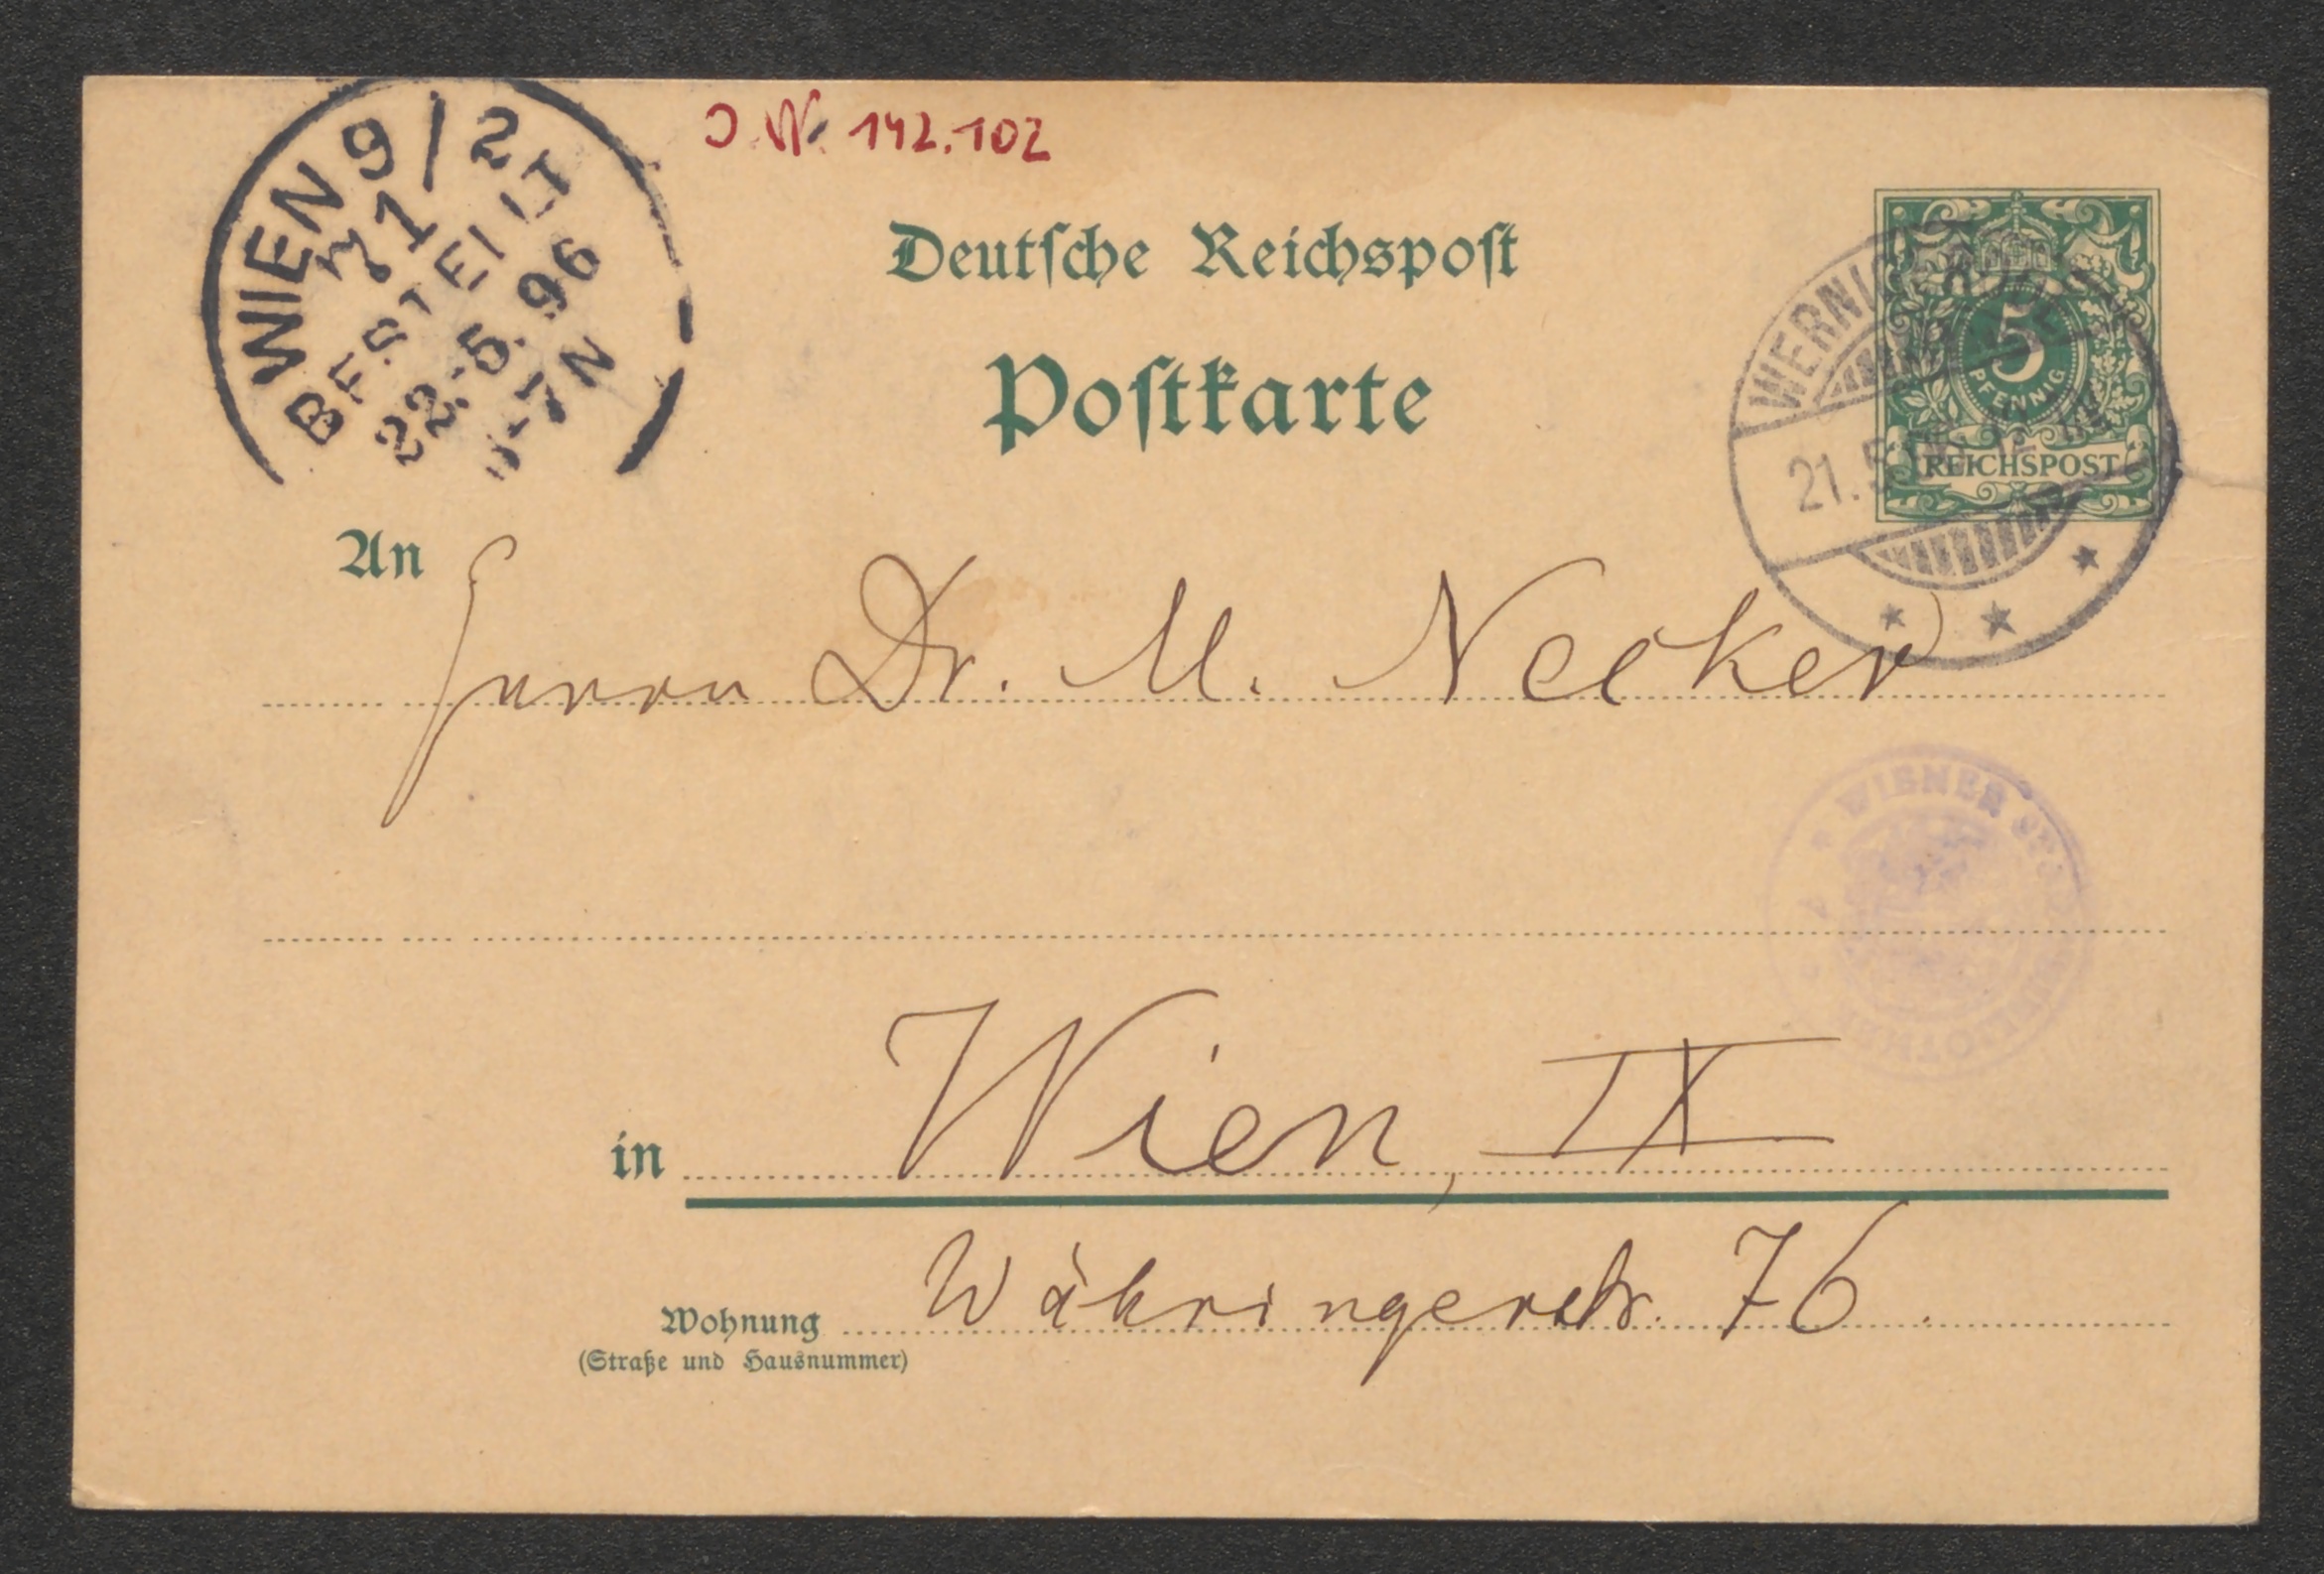 J.N. 142.102
WIEN 9/2
71
BESTELLT
22.5.96
-7N
Deutsche Reichspost
Postkarte
5
PFENNIG
REICHSPOST
WERNIGERODE
21.5.
An Herrn Dr. M. Necker
WIENER
in Wien, IX
Währingerstr. 76.
Wohnung
(Straße und Hausnummer)